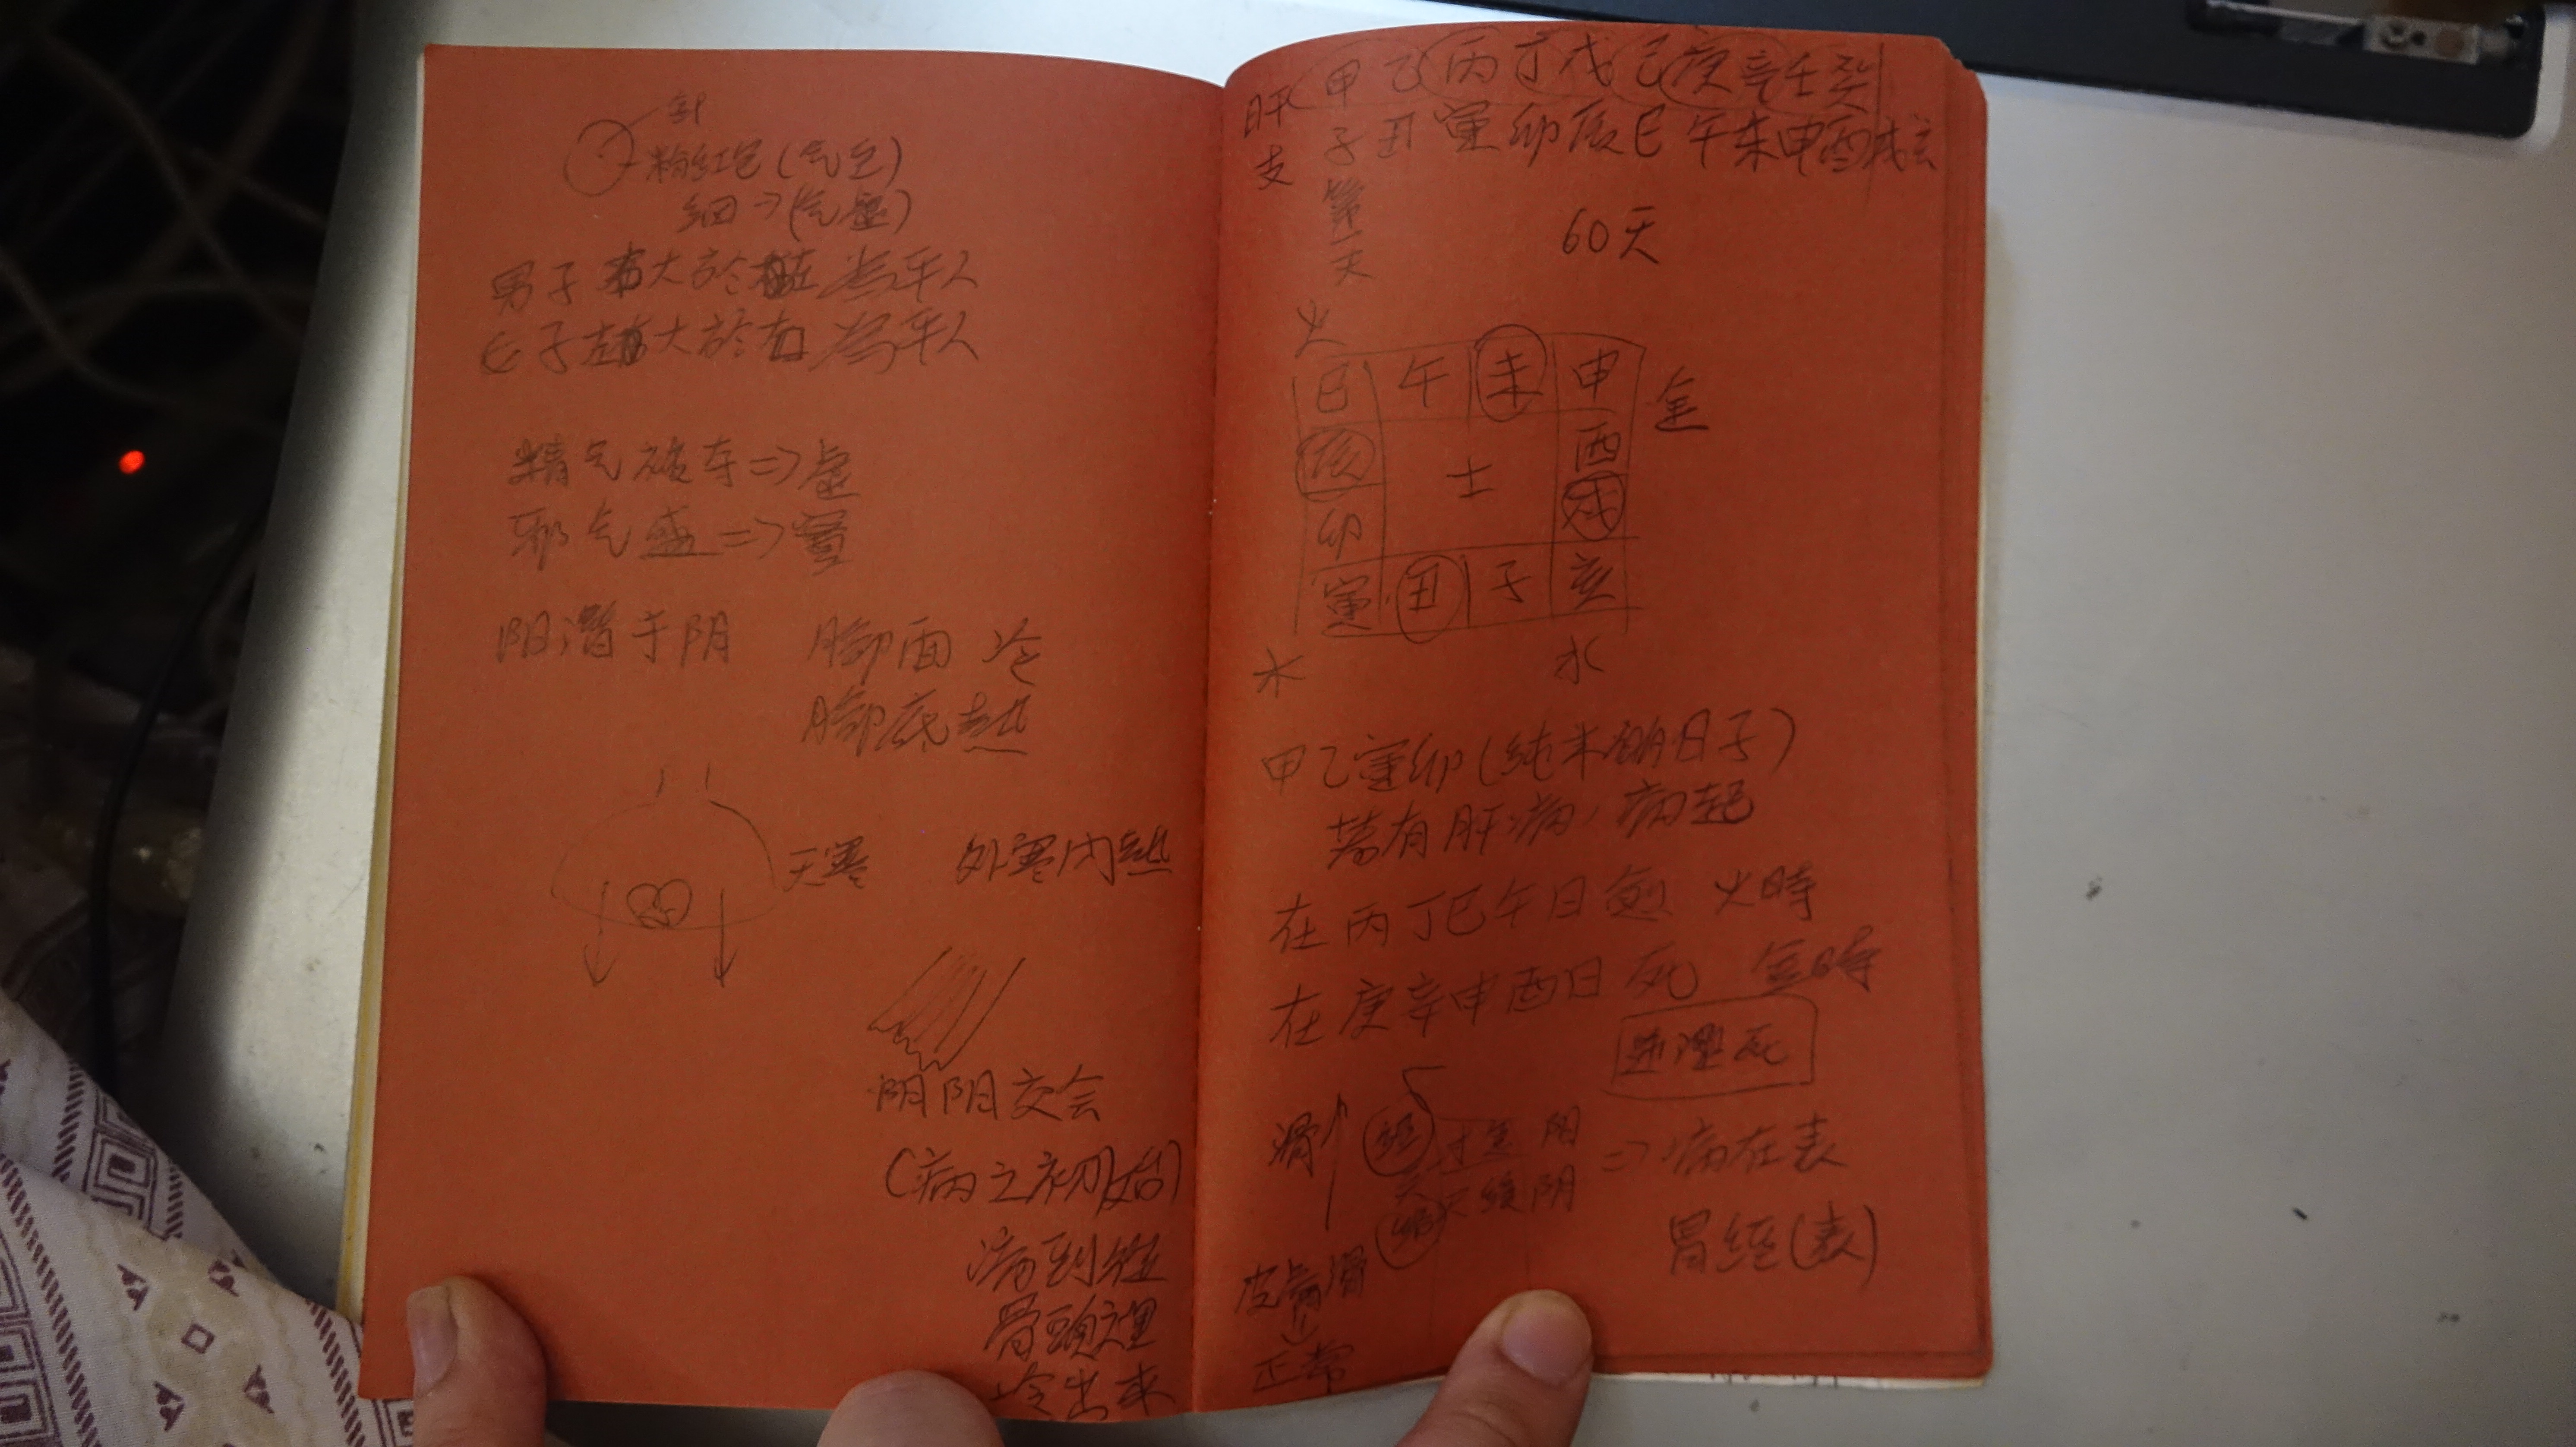 粉红色(气足)
细→(气虚)
男子右大於左 为平人
女子左大於右 为平人
精气被夺=>虚
邪气盛=>實
阳潛于阴 腳面 冷
腳底热
天寒 外寒内热
阴阳交会
(病之初始)
病到
骨頭裡
冷出来
肝 甲乙丙丁戊己庚辛壬癸
支 子丑寅卯辰巳午未申酉戌亥
第一天
60天
火
巳 午 未 申 金
辰 土 酉
卯 戌
寅 丑 子 亥
木 水
甲乙寅卯(纯木的日子)
若有肝病,病起
在丙丁巳午日愈 火時
在庚辛申酉日死 金時
死
滑 经 阳 => 病在表
络 阴
胃经(表)
皮膚滑
正常